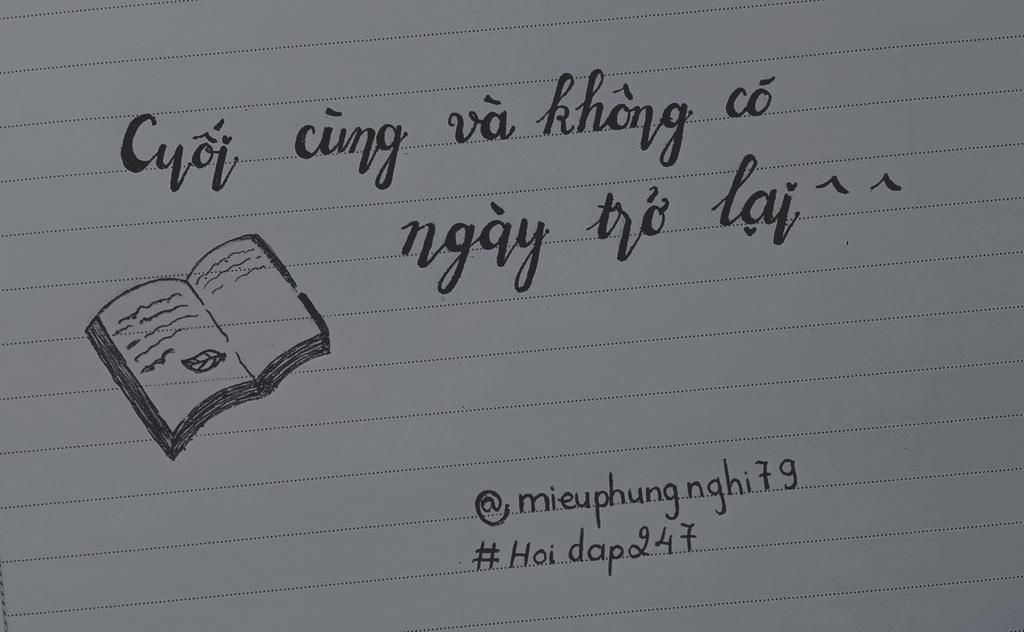 Cuối cùng và không có
ngày trở lại ^ ^
@mieuphungnghi79
#Hoidap247